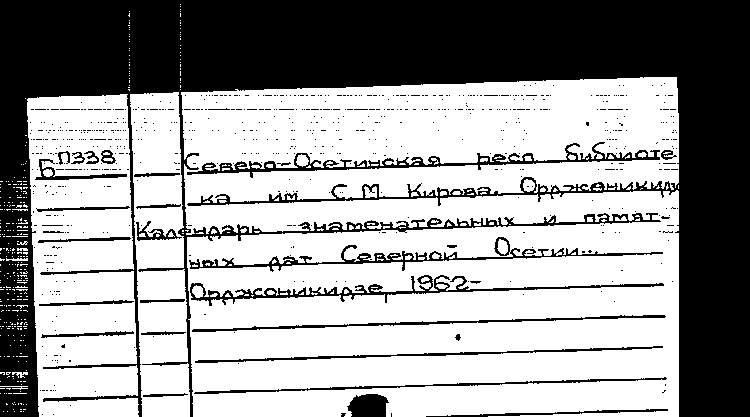 БП338 Северо-Осетинская респ библиоте
ка им С.М. Кирова. Орджоникидзе
Календарь знаменательных и памят-
ных дат Северной Осетии...
Орджоникидзе, 1962-